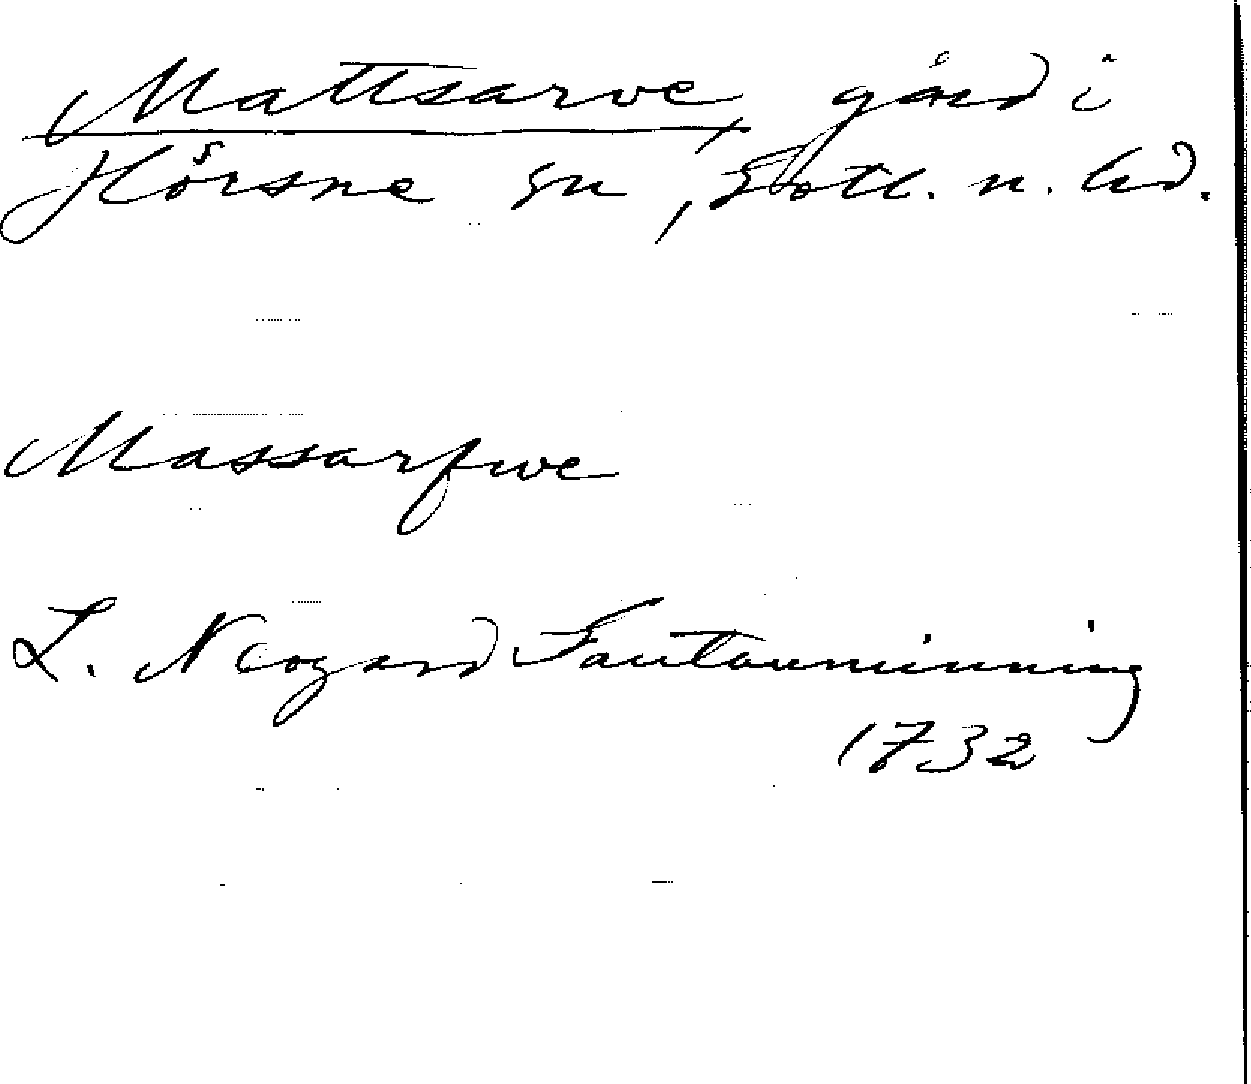 Mattsarve, gård i
Hörsne sn, Gotl. n. hd.
Massarfwe
L. Neogard Gautauminning
1732